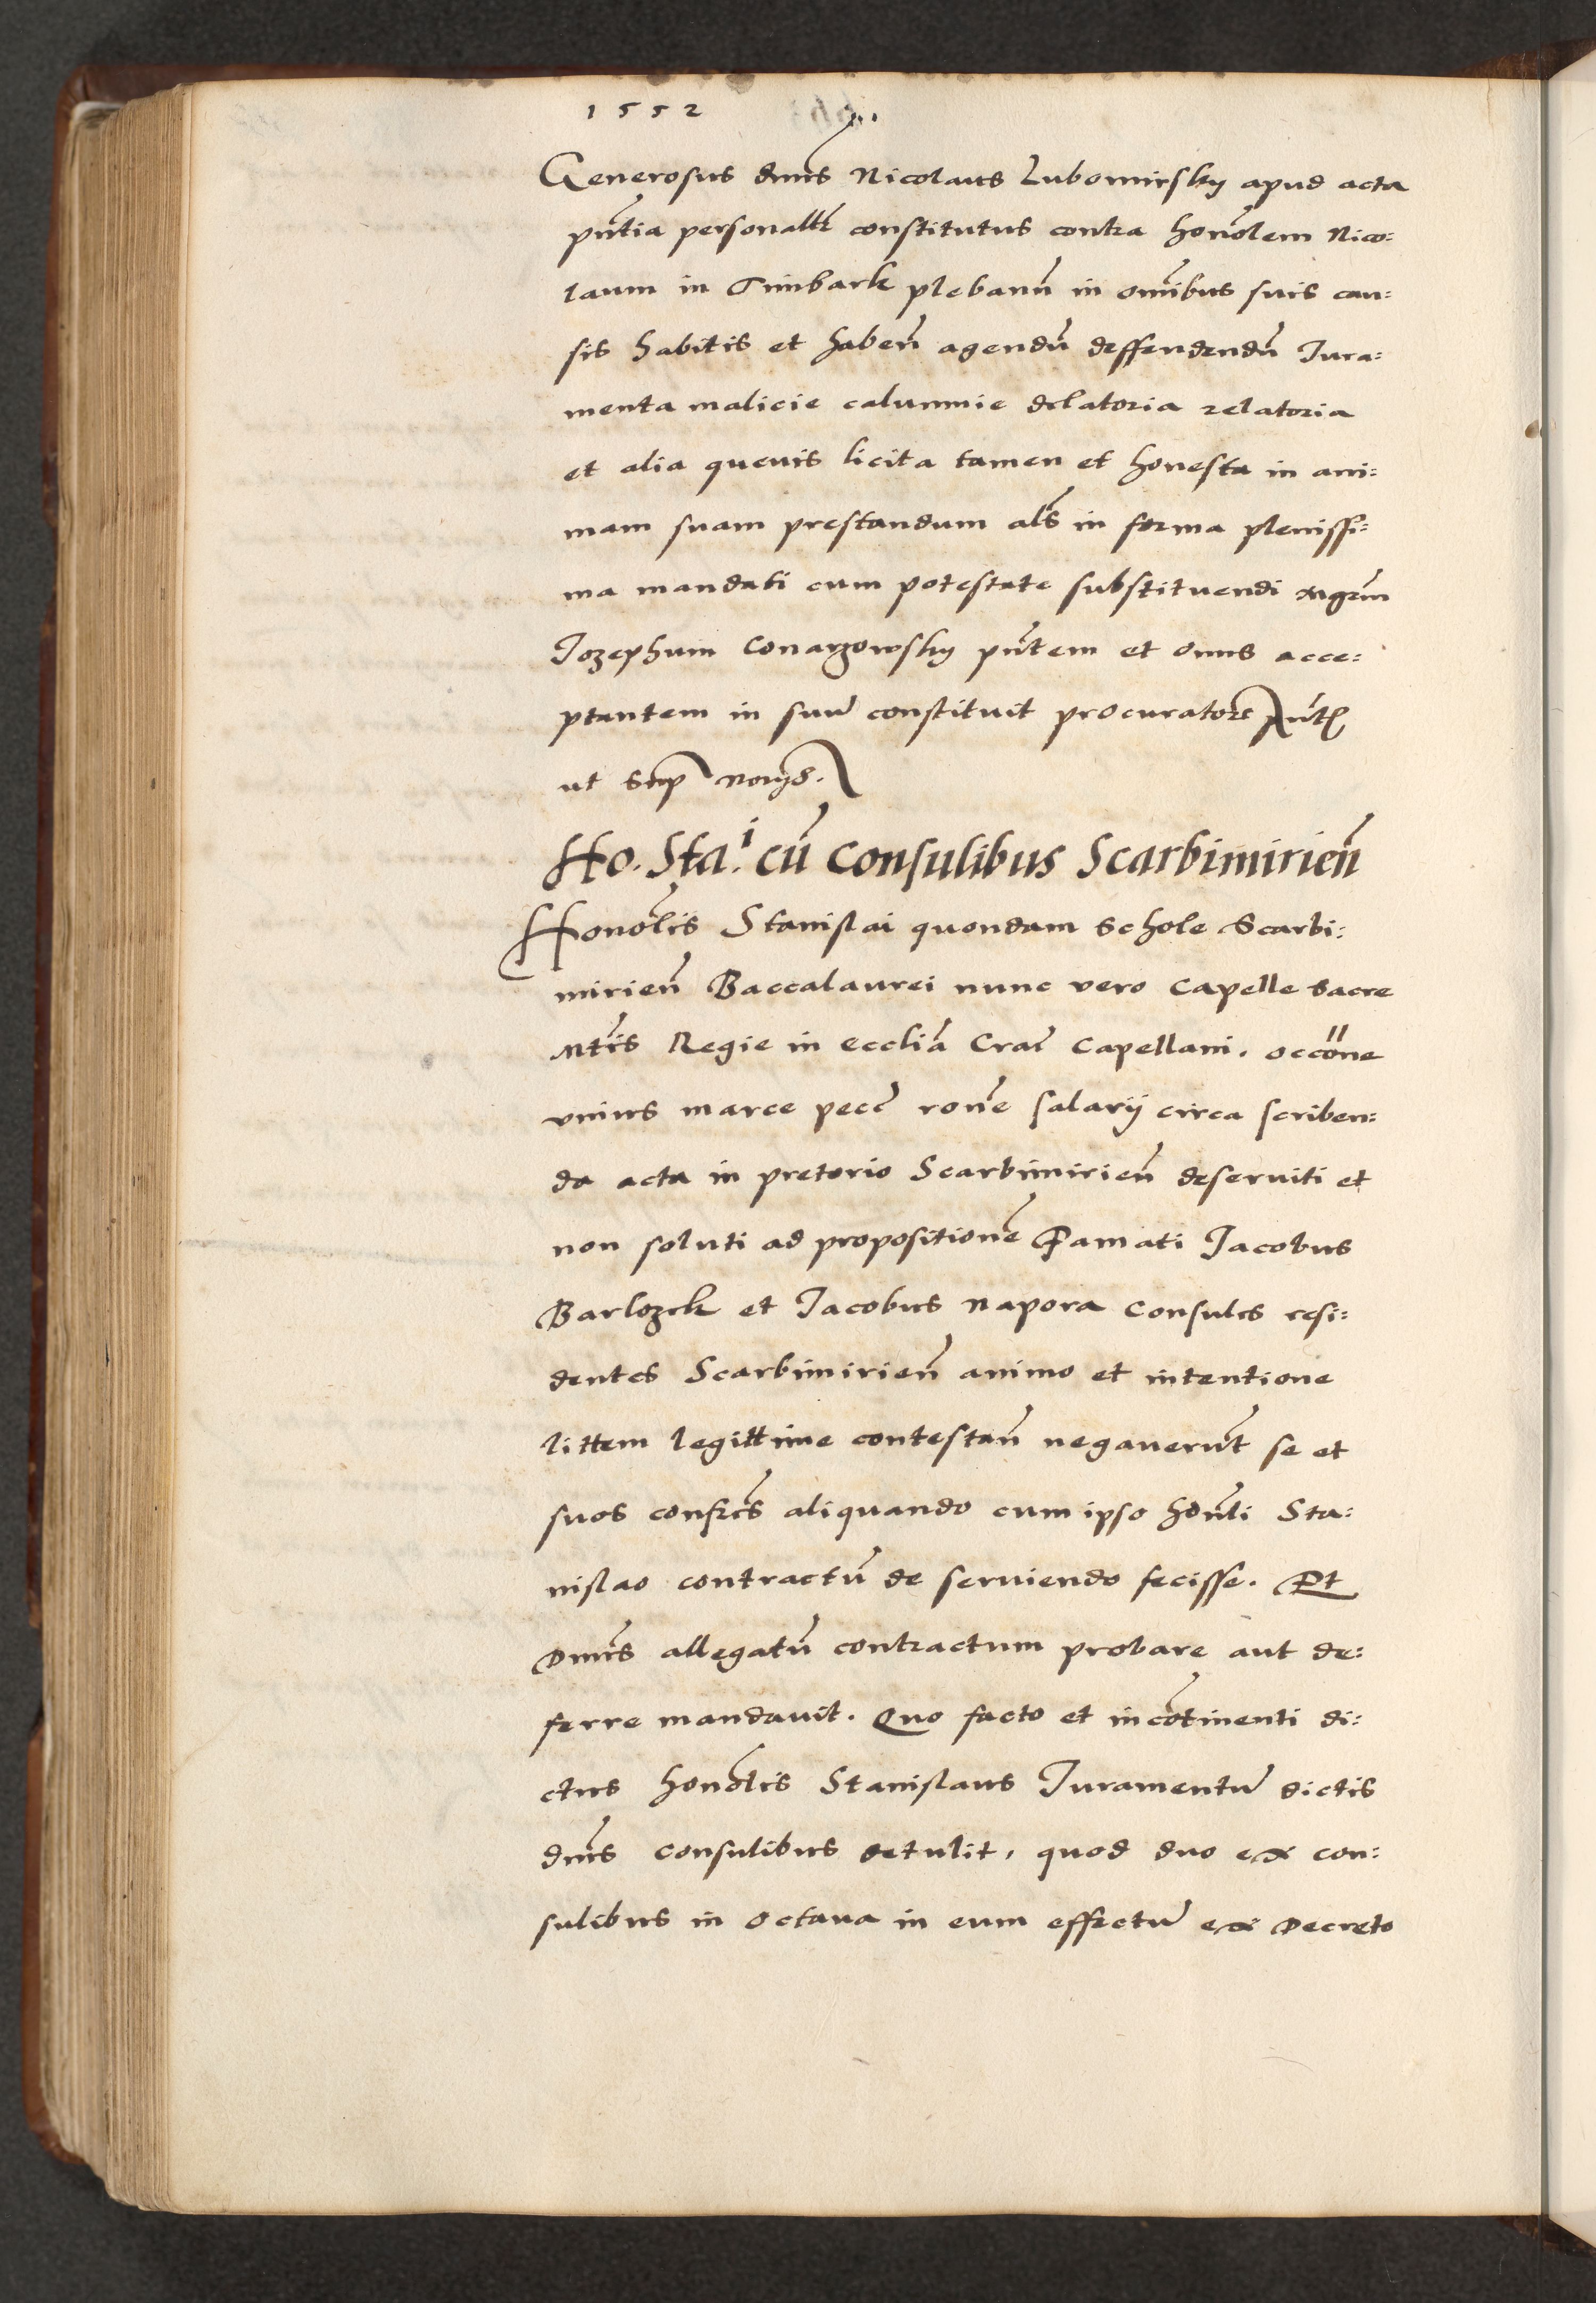 1552
Generosus dnus Nicolaus Lubomirsky apud acta
pntia personallr constitutus contra honolem Nico:
laum in Timbark plebanu in omibus suis cau:
sis habitis et haben agendu deffendendu Iura:
menta malicie calumnie delatoria relatoria
et alia quevis licita tamen et honesta in ani:
mam suam prestandum als in forma plenissi:
ma mandati cum potestate substituendi mgrm
Iozephum Conarzowsky pntem et onus acce:
ptantem in suu constituit procuratore pntb
ut sup
Ho. Stai. cu Consulibus Scarbimirien
Honolis Stanislai quondam Schole Scarbi:
mirien Baccalaurei nunc vero Capelle Sacre
Mtis Regie in ecclia Crac Capellani. occone
unius marce pecc rone salarij circa scriben:
da acta in pretorio Scarbimirien deserviti et
non soluti ad propositione Famati Iacobus
Barlozek et Iacobus Napora Consules resi:
dentes Scarbimirien animo et intentione
littem legittime contestan negaverut se et
suos confres aliquando cum ipso honli Sta:
nislao contractu de serviendo fecisse. Et
Dnus allegatu contractum probare aut de:
ferre mandavit. Quo facto et incotinenti di:
ctus honolis Stanislaus Iuramentu dictis
dnis consulibus detulit, quod duo ex con:
sulibus in octava in eum effectu ex Decreto